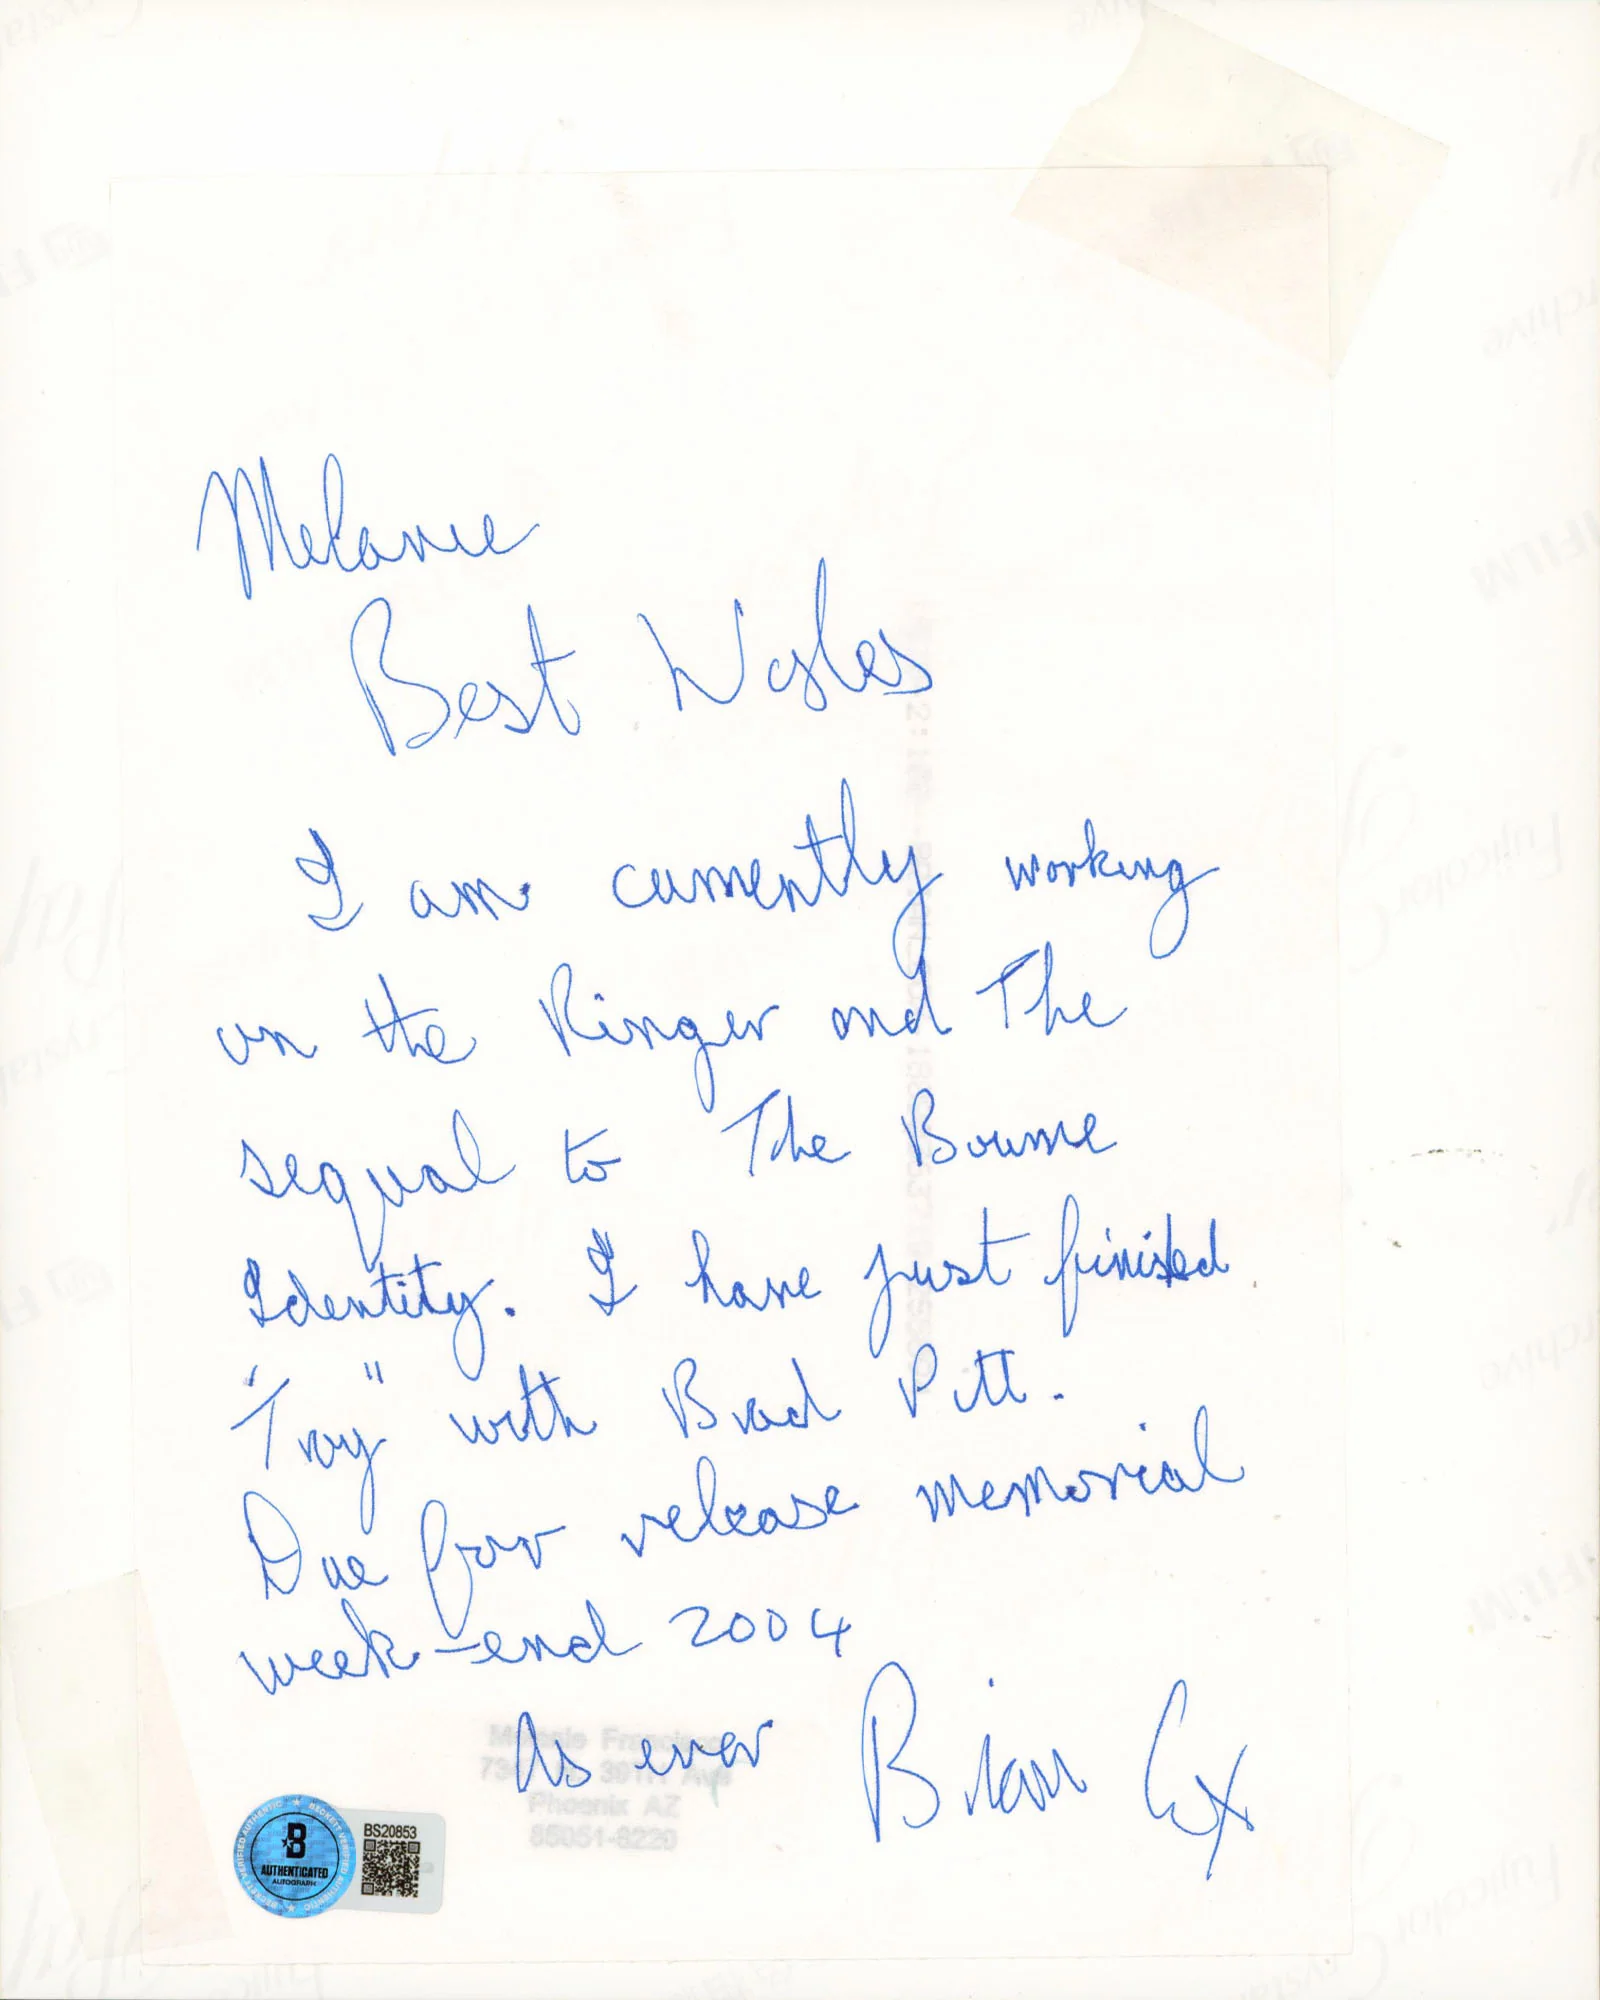 Melanie
Best Wishes
I am currently working
on the Ringer and The
sequal to The Bourne
Identity. I have just finished
"Troy" with Brad Pitt.
Due for release memorial
week-end 2004
As ever Brian Cox
Melanie Francisco
39TH Ave
Phoenix AZ
85051-8220
BS20853
B
AUTHENTICATED
AUTOGRAPH